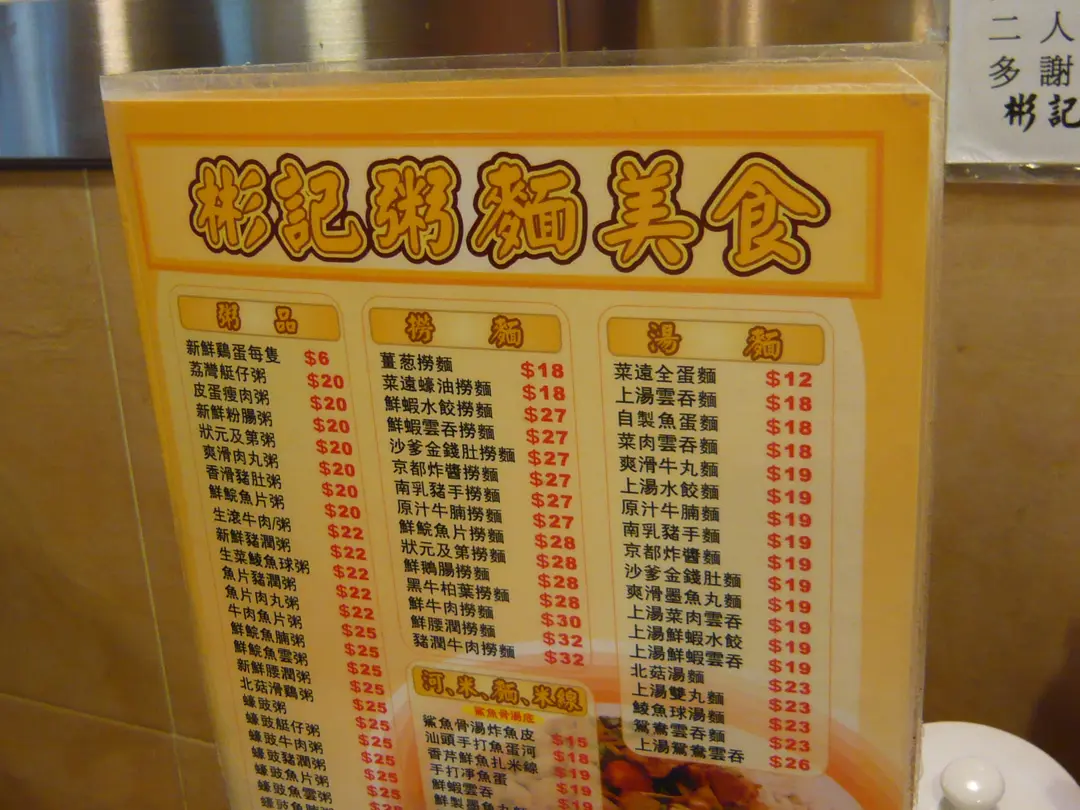 二人
多謝
彬記
彬記粥麵美食
粥品
新鮮鷄蛋每隻 $6
荔灣艇仔粥 $20
皮蛋瘦肉粥 $20
新鮮粉腸粥 $20
狀元及第粥 $20
爽滑肉丸粥 $20
香滑豬肚粥 $20
鮮鯇魚片粥 $20
生滾牛肉/粥 $22
新鮮豬潤粥 $22
生菜鯪魚球粥 $22
魚片豬潤粥 $22
魚片肉丸粥 $22
牛肉魚片粥 $25
鮮鯇魚腩粥 $25
鮮鯇魚雲粥 $25
新鮮腰潤粥 $25
北菇滑鷄粥 $25
蠔豉粥 $25
蠔豉艇仔粥 $25
蠔豉牛肉粥 $25
蠔豉豬潤粥 $25
蠔豉魚片粥
蠔豉魚雲粥
撈麵
薑葱撈麵 $18
菜遠蠔油撈麵 $18
鮮蝦水餃撈麵 $27
鮮蝦雲吞撈麵 $27
沙爹金錢肚撈麵 $27
京都炸醬撈麵 $27
南乳豬手撈麵 $27
原汁牛腩撈麵 $27
鮮鯇魚片撈麵 $28
狀元及第撈麵 $28
鮮鵝腸撈麵 $28
黑牛柏葉撈麵 $28
鮮牛肉撈麵 $30
鮮腰潤撈麵 $32
豬潤牛肉撈麵 $32
河、米、麵、米線
鯊魚骨湯底
鯊魚骨湯炸魚皮 $15
汕頭手打魚蛋河 $18
香芹鮮魚扎米線 $19
手打凈魚蛋 $19
鮮蝦雲吞 $19
鮮製墨魚丸
湯麵
菜遠全蛋麵 $12
上湯雲吞麵 $18
自製魚蛋麵 $18
菜肉雲吞麵 $18
爽滑牛丸麵 $19
上湯水餃麵 $19
原汁牛腩麵 $19
南乳豬手麵 $19
京都炸醬麵 $19
沙爹金錢肚麵 $19
爽滑墨魚丸麵 $19
上湯菜肉雲吞 $19
上湯鮮蝦水餃 $19
上湯鮮蝦雲吞 $19
北菇湯麵 $23
上湯雙丸麵 $23
鯪魚球湯麵 $23
鴛鴦雲吞麵 $23
上湯鴛鴦雲吞 $26